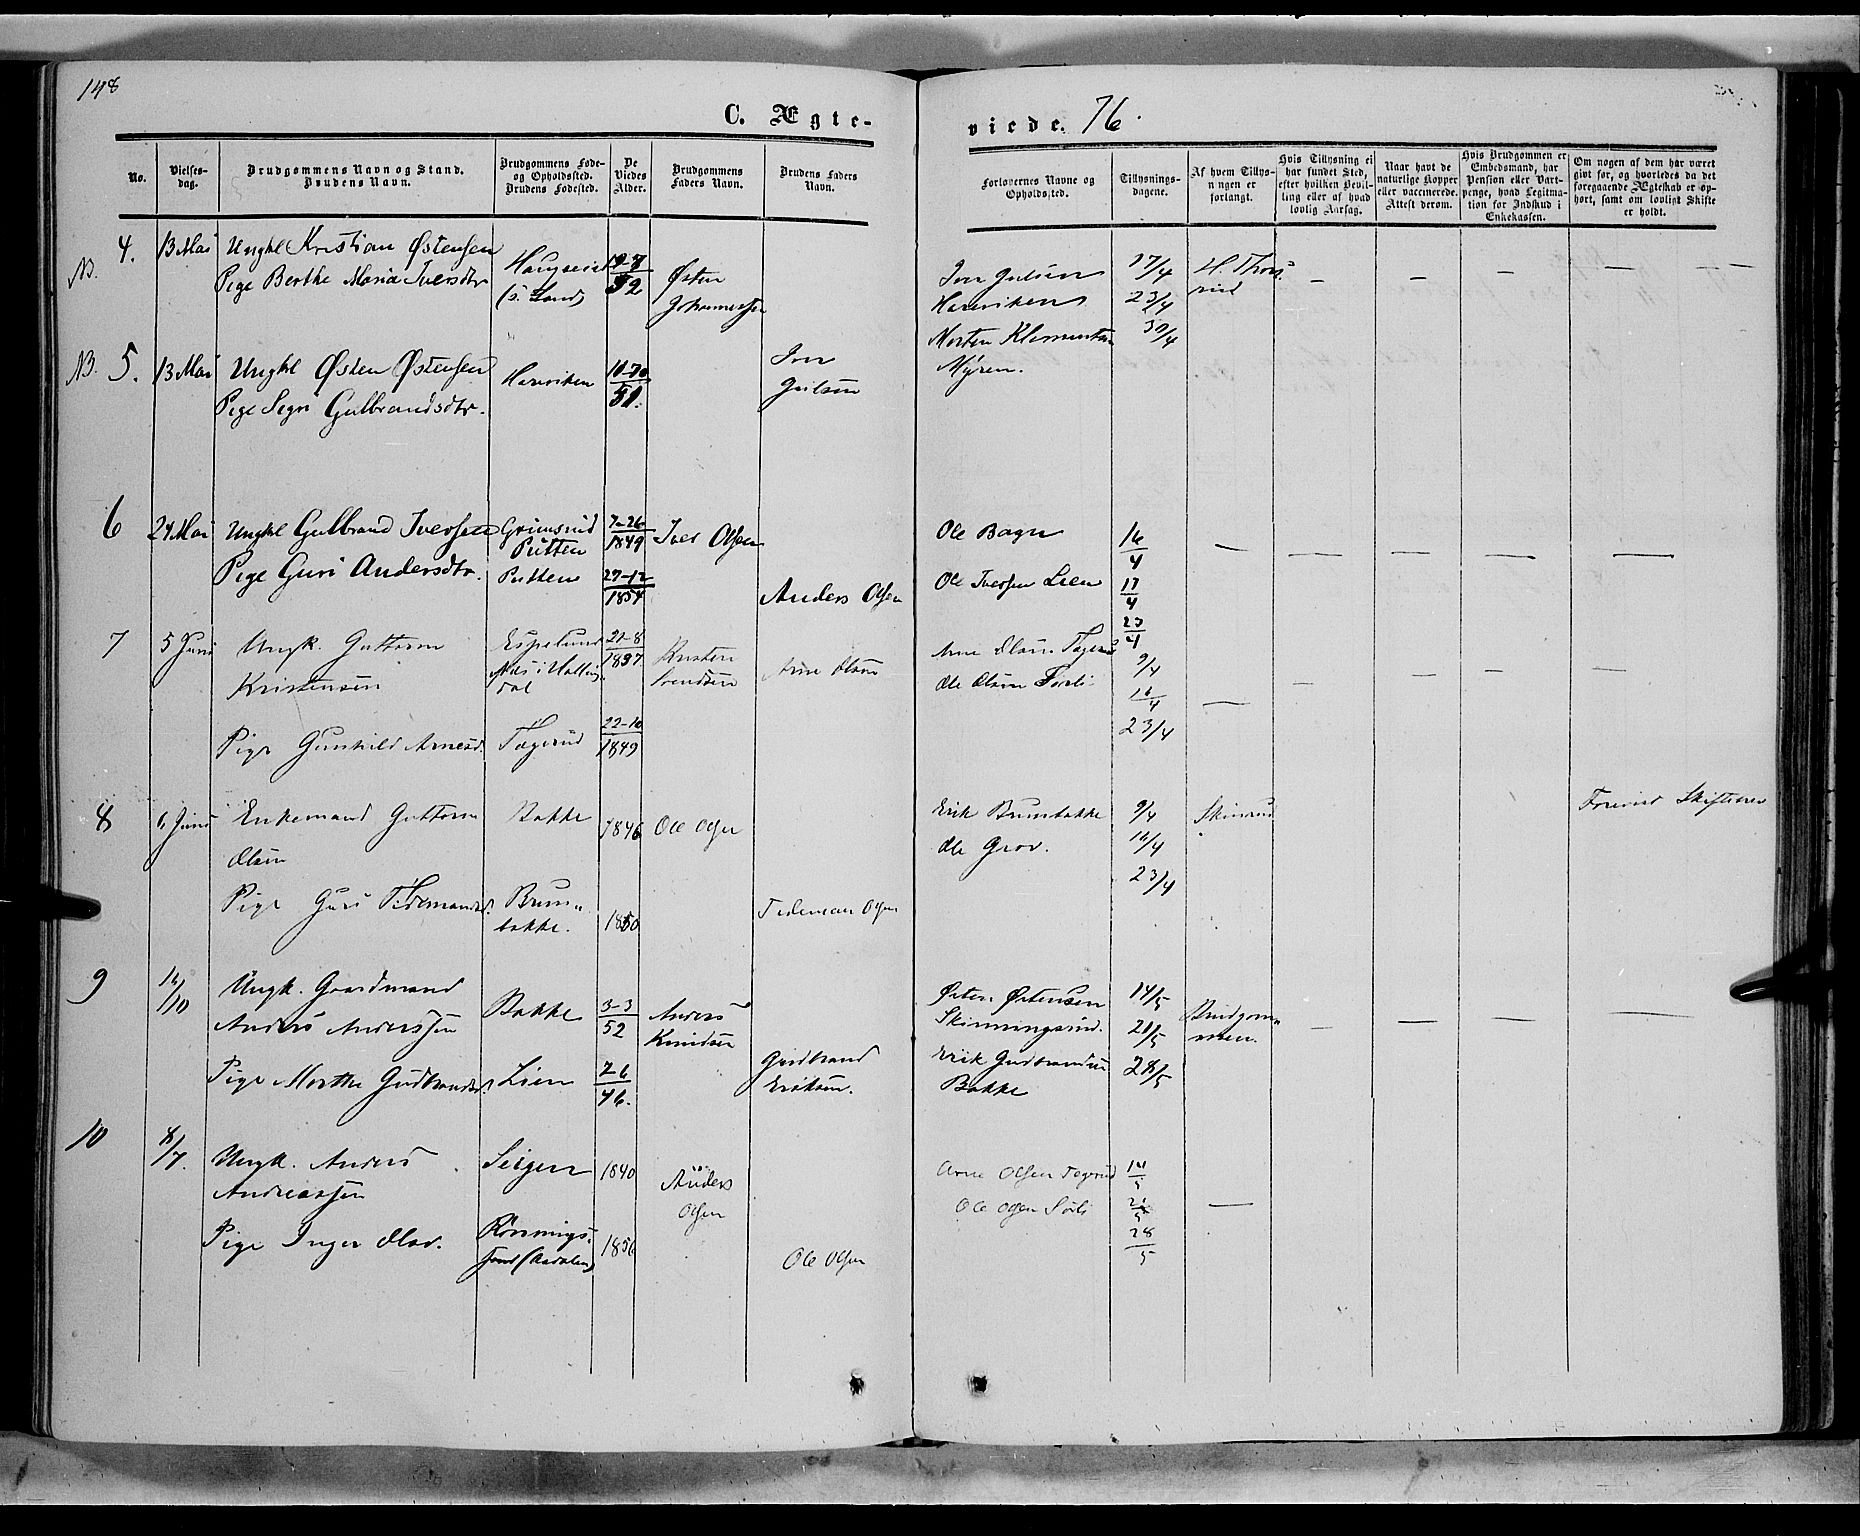 148
C. Ægte-
viede. 76.
No.
Vielses-
dag.
Brudgommens Navn og Stand.
Brudens Navn.
Brudgommens Føde-
og Opholdssted.
Brudens Fødested.
De
Viedes
Alder.
Brudgommens
Faders Navn.
Brudens Faders
Navn.
Forlovernes Navne og
Opholdssted.
Tillysnings-
dagene.
Af hvem Tillys-
ningen er
forlangt.
Hvis Tillysning ei
har fundet Sted,
efter hvilken Bevil-
ling eller af hvad
lovlig Aarsag.
Naar havt de
naturlige Kopper
eller vaccinerede.
Attest derom.
Hvis Brudgommen er
Embedsmand, har
Pension eller Vart-
penge, hvad Legitima-
tion for Indskud i
Enkekassen.
Om nogen af dem har været
givt før, og hvorledes da det
foregaaende Ægteskab er op-
hørt, samt om lovligt Skifte
er holdt.
NB. 4. 13 Mai Ungkl Kristian Østensen
Pige Berthe Maria Iversdtr
(S. Land)
52
Østen
Johannessen
Iver Gulsen
Hareviken
Morten Klementsen
Myren.
17/4
23/4
30/4
H. Thos
rud
NB. 5. 13 Mai Ungkl Østen Østensen
Pige Segri Gulbrandsdtr.
Hareviken
51.
Iver
Gulsen
6 24 Mai Ungkl Gulbrand Iversen
Pige Guri Andersdtr.
Grimsrud
Putten
Putten
7-26
1849
27-12
1854
Iver Olsen
Anders Olsen
Ole Bagn
Ole Iversen Lien
16/4
17/4
23/4
7 5 Juni Ungk. Guttorm
Kristensen
Pige Gunhild Arnesd.
Espelund
Næs i Halling
dal
Tagerud
21-8
1837
22-10
1849
Kristen
Svendsen
Arne Olsen
Arne Olsen Tagerud
Ole Olsen Sørli
9/4
16/4
23/4
8 6 Juni Enkemand Guttorm
Olsen
Pige Guri Tidemandsd.
Bakke
Brun-
bakke.
1846
1850
Ole Olsen
Tideman Olsen
Erik Brunbakke
Ole Grov.
9/4
16/4
23/4
Skinrud
Forevist Skifteattest
9 14/10 Ungk. Gaardmand
Anders Anderssen
Pige Marthe Gudbrandsd.
Bakke
Lien
3-3
52
7-6
46.
Anders
Knudsen
Gudbrand
Eriksen.
Østen Østensen
Skinningsrud.
Erik Gudbrandsen
Bakke
14/5
21/5
28/5
Brudgom-
men.
10 8/7. Ungk. Anders
Andreassen
Pige Inger Olsd.
Leigen
(Aadalen)
1840
1856
Anders
Olsen
Ole Olsen
Arne Olsen Tagerud
Ole Olsen Sørli
14/5
21/5
28/5